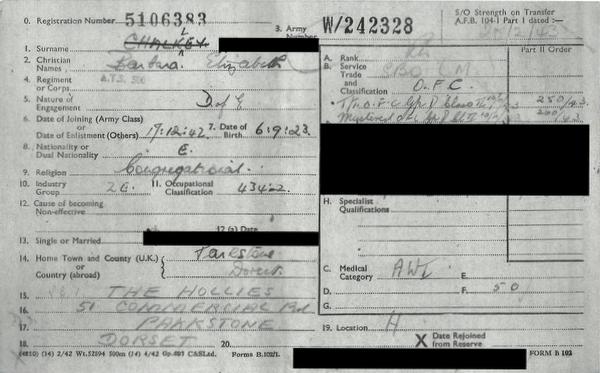 0. Registration Number 5106383
3. Army Number W/242328
S/O Strength on Transfer
A.F.B. 104-1 Part I dated :—
1. Surname CHALKEY
2. Christian Names Barbara Elizabeth
4. Regiment or Corps A.T.S.
5. Nature of Engagement D of E
6. Date of Joining (Army Class) or Date of Enlistment (Others) 17.12.42
7. Date of Birth 6.9.23
8. Nationality or Dual Nationality E.
9. Religion Congregational
10. Industry Group
11. Occupational Classification
12. Cause of becoming Non-effective
12 (a) Date
13. Single or Married
14. Home Town and County (U.K.) or Country (abroad) Parkstone Dorset
15. THE HOLLIES
16. 51 COMMERCIAL Rd
17. PARKSTONE
18. DORSET
20.
(4810) (14) 2/42 Wt.52594 500m (14) 4/42 Gp.693 C&SLtd. Forms B.102/1.
Part II Order
A. Rank
B. Service Trade and Classification O.F.C.
250/43
H. Specialist Qualifications
C. Medical Category
E.
D.
F. 50
G.
19. Location H
X Date Rejoined from Reserve
FORM B 102